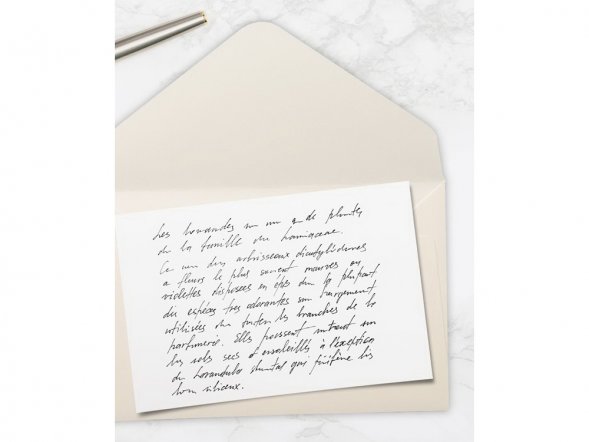 Les Lavandes de plantes
de la famille des Lamiaceae.
Ce des arbrisseaux dicotylédones
a fleurs le plus souvent mauves ou
violettes disposées en épis la plupart
des espèces très odorantes sont largement
utilisées toutes les branches de la
parfumerie. Elles poussent surtout sur
les sols secs et ensoleillés à l'exception
de qui préfère les